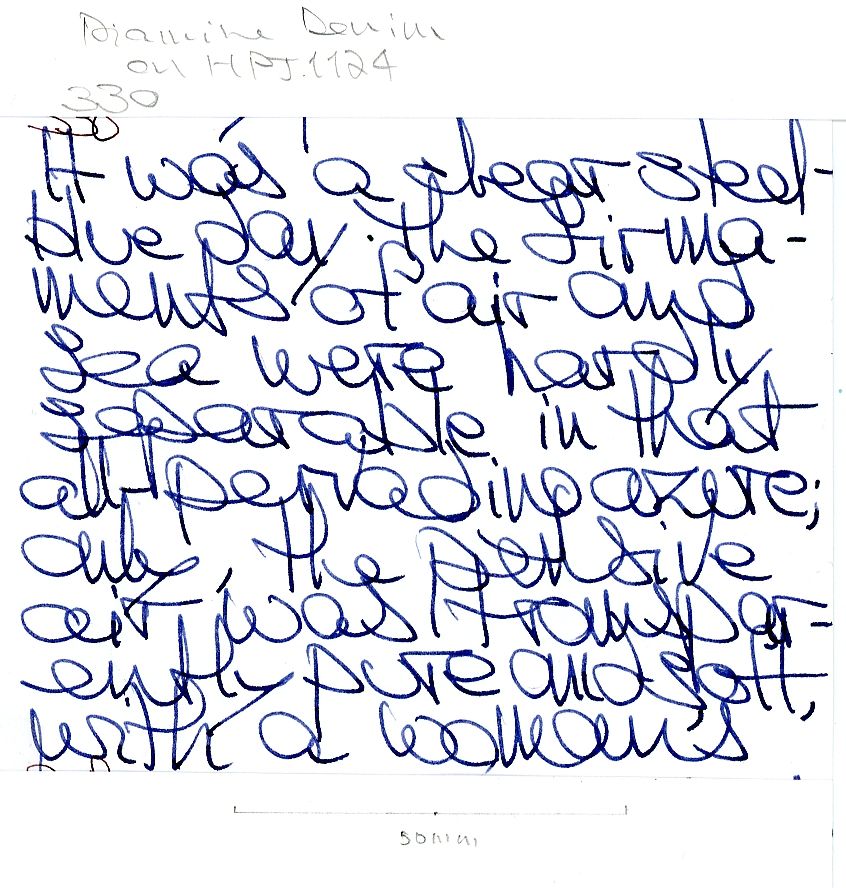 Diamine Denim
on HPJ.1124
330
It was a clear steel-
blue day. the firma-
ments of air and
sea were hardly
separable in that
all-pervading azure;
only, the pensive
air was transpar-
ently pure and soft,
with a woman's
50mm